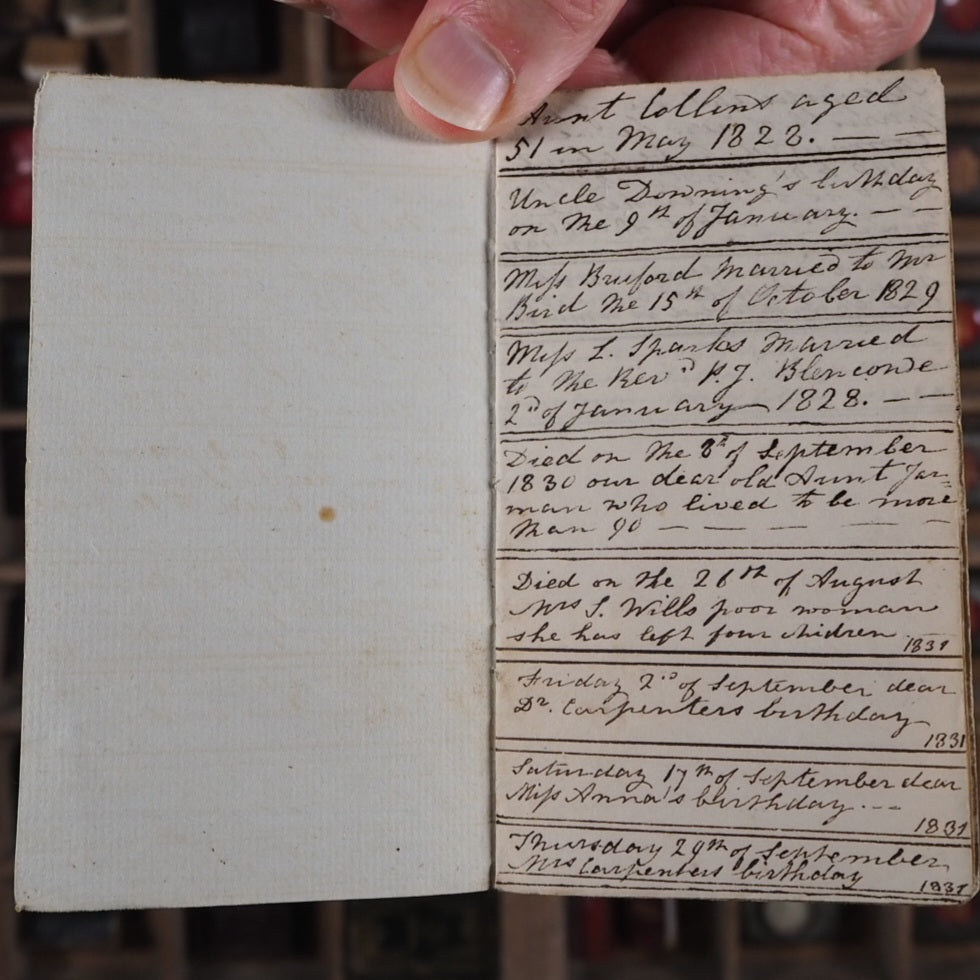 Aunt Collins aged
51 in May 1828. — —
Uncle Downing's birthday
on the 9th of January. — —
Miss Buford Married to Mr
Bird the 15th of October 1829
Miss L. Sparks Married
to the Revd P. J. Blencowe
2d of January — 1828. — —
Died on the 8th of September
1830 our dear old Aunt Jar=
man who lived to be more
than 90 — — — —
Died on the 26th of August
Mrs S. Wills poor woman
she has left four chidren 1831
Friday 2d of September dear
Dr. Carpenters birthday
1831
Saturday 17th of September dear
Miss Anna's birthday - - -
1831
Thursday 29th of September
Mrs Carpenters birthday 1831